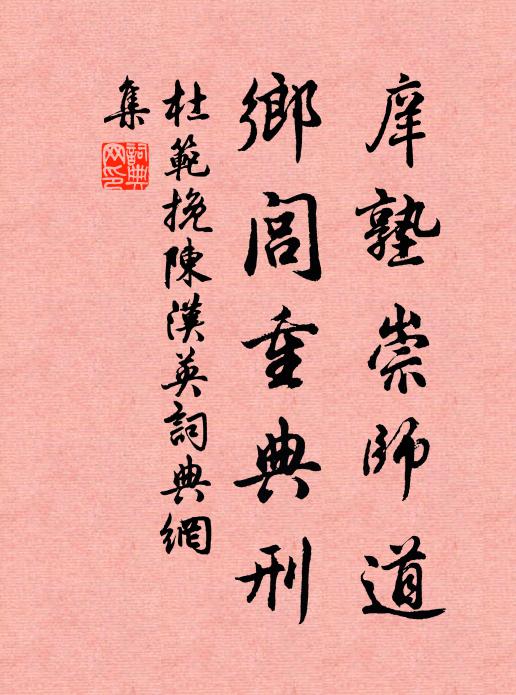 庠塾崇師道
鄉閭重典刑
杜範挽陳漢英詞典網
集
詞典
网印